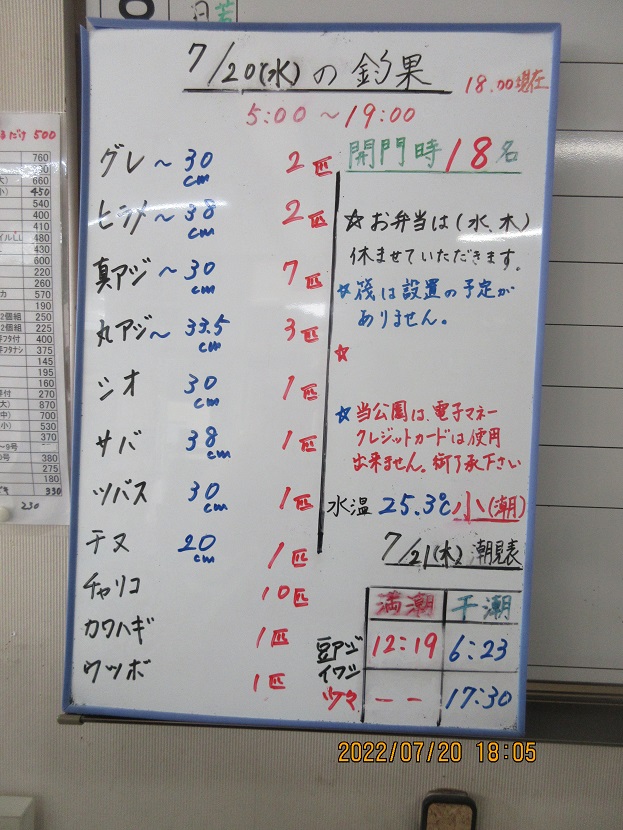 7/20(水)の釣果
18.00現在
5:00〜19:00
開門時18名
グレ〜30cm 2匹
ヒラメ〜38cm 2匹
真アジ〜30cm 7匹
丸アジ〜33.5cm 3匹
シオ 30cm 1匹
サバ 38cm 1匹
ツバス 30cm 1匹
チヌ 20cm 1匹
チャリコ 10匹
カワハギ 1匹
ウツボ 1匹
☆お弁当は(水、木)
休ませていただきます。
☆筏は設置の予定が
ありません。
☆
☆当公園は、電子マネー
クレジットカードは使用
出来ません。御了承下さい
水温 25.3℃ 小(潮)
7/21(木)潮見表
満潮 干潮
12:19 6:23
-- 17:30
豆アジ
イワシ
500
760
660
450
540
400
410
480
430
600
220
260
570
190
2個組 250
2個組 225
400
375
145
195
160
270
870
700
530
370
380
275
180
330
230
2022/07/20 18:05